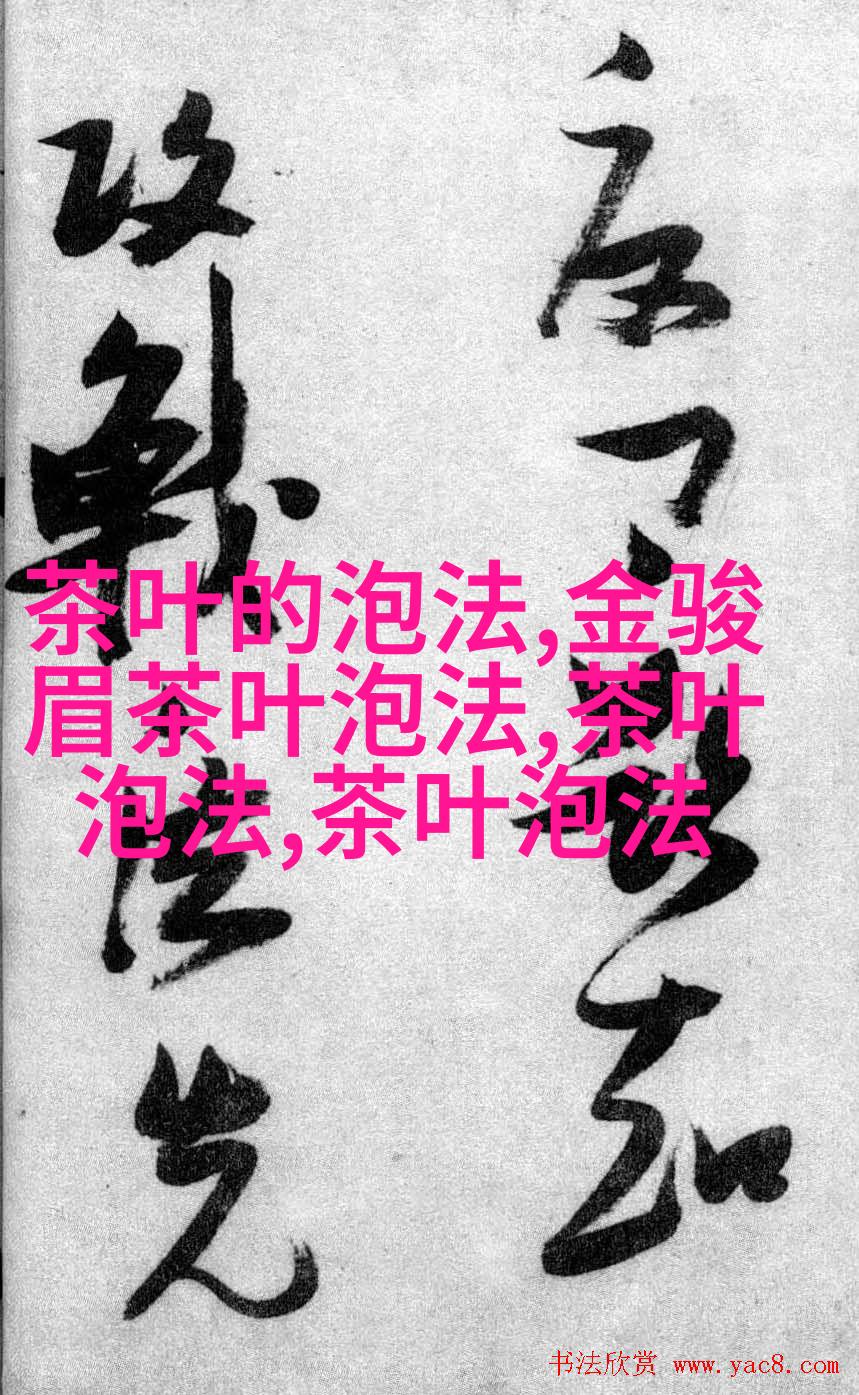 知
攻戰先
茶叶的泡法,金骏
眉茶叶泡法,茶叶
泡法,茶叶泡法
书法欣赏 www.yac8.com